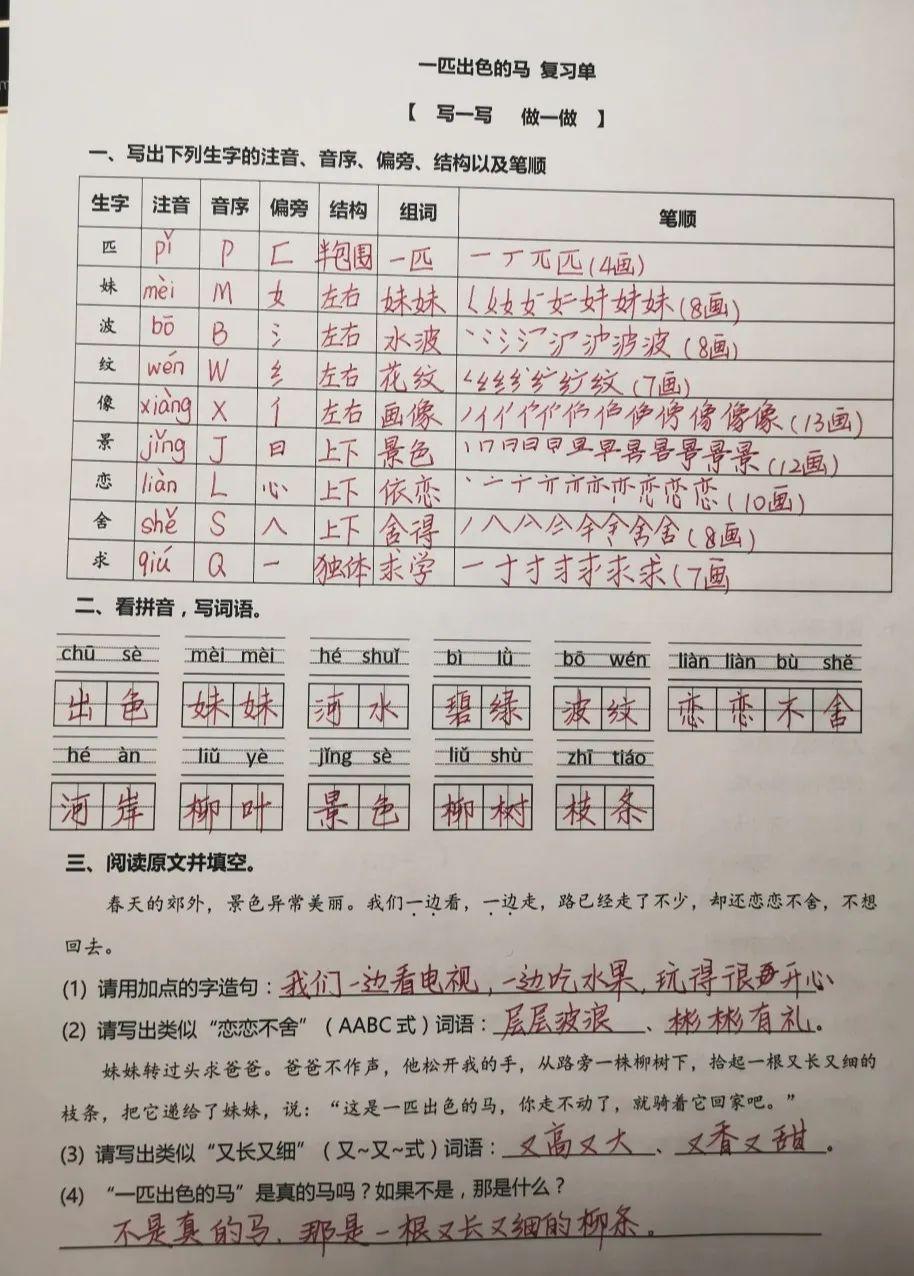 一匹出色的马 复习单
【 写一写 做一做 】
一、写出下列生字的注音、音序、偏旁、结构以及笔顺
生字 注音 音序 偏旁 结构 组词 笔顺
匹 pǐ P 匚 半包围 一匹 一 丆 兀 匹(4画)
妹 mèi M 女 左右 妹妹 (8画)
波 bō B 氵 左右 水波 (8画)
纹 wén W 纟 左右 花纹 (7画)
像 xiàng X 亻 左右 画像 (13画)
景 jǐng J 日 上下 景色 (12画)
恋 liàn L 心 上下 依恋 (10画)
舍 shě S 人 上下 舍得 (8画)
求 qiú Q 一 独体 求学 (7画
二、看拼音，写词语。
chū sè mèi mèi hé shuǐ bì lǜ bō wén liàn liàn bù shě
出色 妹妹 河水 碧绿 波纹 恋恋不舍
hé àn liǔ yè jǐng sè liǔ shù zhī tiáo
河岸 柳叶 景色 柳树 枝条
三、阅读原文并填空。
春天的郊外，景色异常美丽。我们一边看，一边走，路已经走了不少，却还恋恋不舍，不想
回去。
(1) 请用加点的字造句：我们一边看电视，一边吃水果，玩得很开心
(2) 请写出类似“恋恋不舍”（AABC式）词语：层层波浪、彬彬有礼。
妹妹转过头求爸爸。爸爸不作声，他松开我的手，从路旁一株柳树下，拾起一根又长又细的
枝条，把它递给了妹妹，说：“这是一匹出色的马，你走不动了，就骑着它回家吧。”
(3) 请写出类似“又长又细”（又~又~式）词语：又高又大、又香又甜。
(4) “一匹出色的马”是真的马吗？如果不是，那是什么？
不是真的马，那是一根又长又细的柳条。